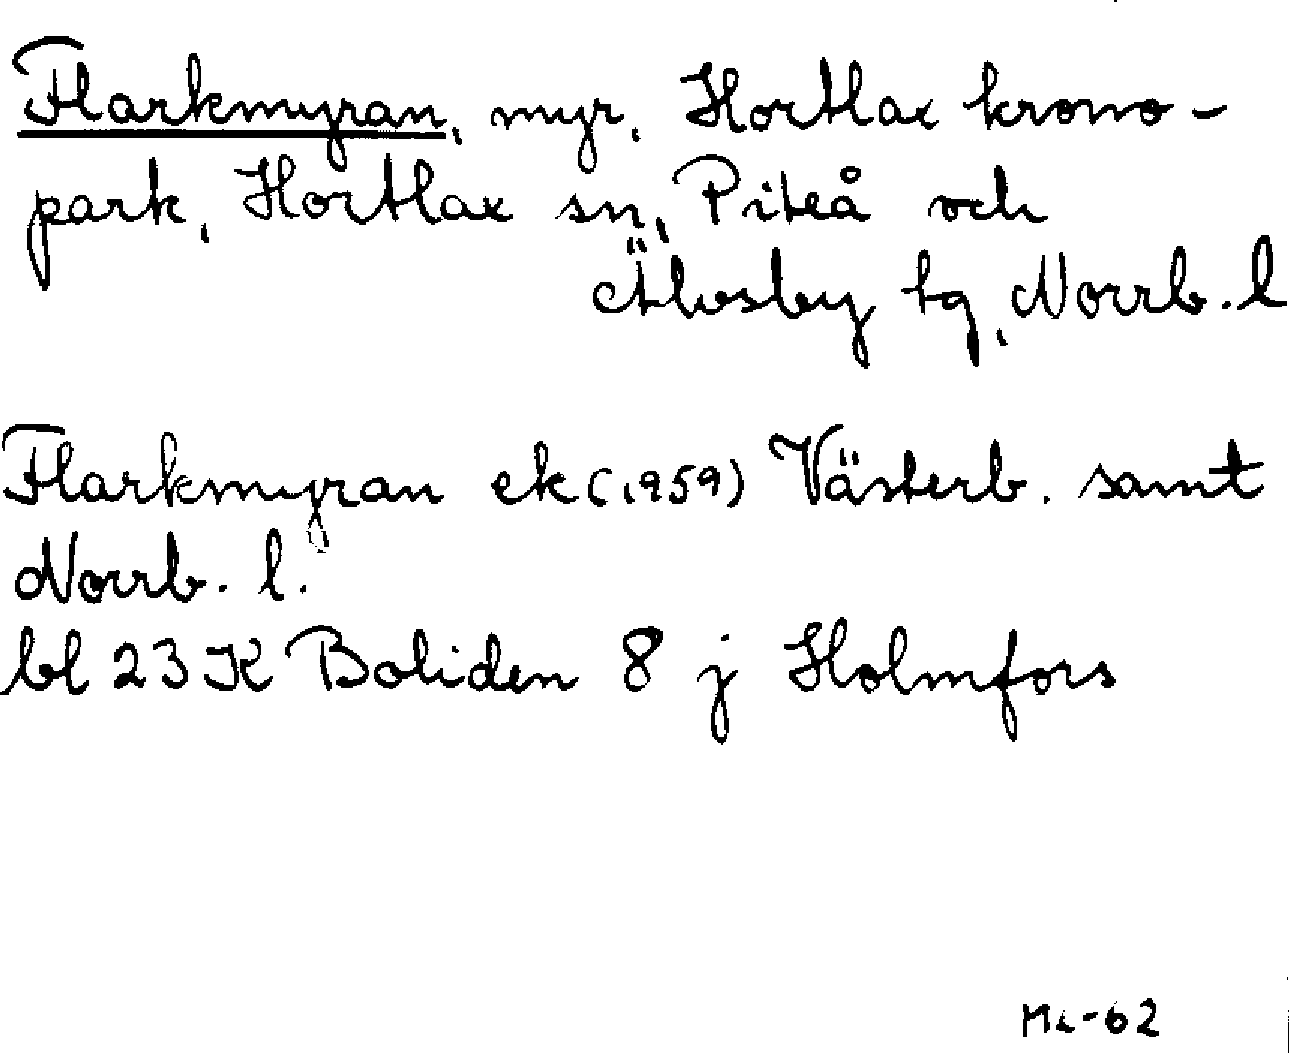 Flarkmyran, myr, Hortlax krono-
park, Hortlax sn, Piteå och
Älvsby tg, Norrb. l
Flarkmyran ek (1959) Västerb. samt
Norrb. l.
bl 23 K Boliden 8 j Holmfors